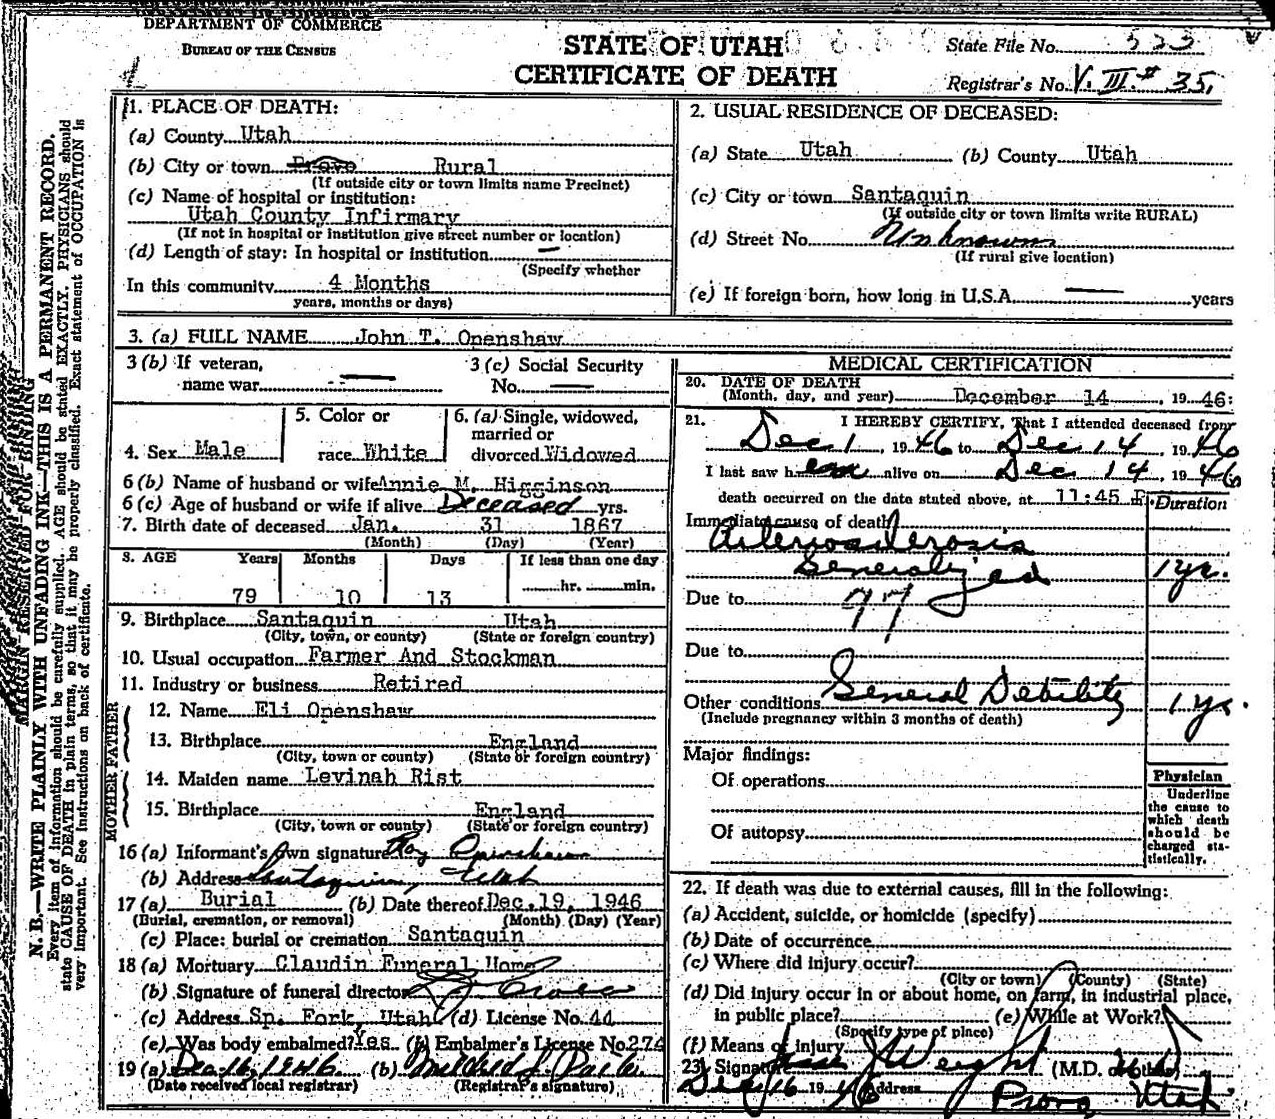 DEPARTMENT OF COMMERCE
BUREAU OF THE CENSUS
STATE OF UTAH
CERTIFICATE OF DEATH
State File No. 523
Registrar's No. V. III. # 35.
N. B.—WRITE PLAINLY WITH UNFADING INK—THIS IS A PERMANENT RECORD.
Every item of information should be carefully supplied. AGE should be stated EXACTLY. PHYSICIANS should
state CAUSE OF DEATH in plain terms, so that it may be properly classified. Exact statement of OCCUPATION is
very important. See instructions on back of certificate.
MARGIN RESERVED FOR BINDING
1. PLACE OF DEATH:
(a) County Utah
(b) City or town Provo Rural
(If outside city or town limits name Precinct)
(c) Name of hospital or institution:
Utah County Infirmary
(If not in hospital or institution give street number or location)
(d) Length of stay: In hospital or institution —
(Specify whether
In this community 4 Months
years, months or days)
2. USUAL RESIDENCE OF DECEASED:
(a) State Utah (b) County Utah
(c) City or town Santaquin
(If outside city or town limits write RURAL)
(d) Street No. Unknown
(If rural give location)
(e) If foreign born, how long in U.S.A. — years
3. (a) FULL NAME John T. Openshaw
3 (b) If veteran,
name war -- —
3 (c) Social Security
No. —
4. Sex Male
5. Color or
race White
6. (a) Single, widowed,
married or
divorced Widowed
6 (b) Name of husband or wife Annie M. Higginson
6 (c) Age of husband or wife if alive Deceased yrs.
7. Birth date of deceased Jan. 31 1867
(Month) (Day) (Year)
8. AGE Years Months Days If less than one day
79 10 13 hr. min.
9. Birthplace Santaquin Utah
(City, town, or county) (State or foreign country)
10. Usual occupation Farmer And Stockman
11. Industry or business Retired
FATHER
12. Name Eli Openshaw
13. Birthplace England
(City, town or county) (State or foreign country)
MOTHER
14. Maiden name Levinah Rist
15. Birthplace England
(City, town or county) (State or foreign country)
16 (a) Informant's own signature Roy Openshaw
(b) Address Santaquin, Utah
17 (a) Burial (b) Date thereof Dec. 19, 1946
(Burial, cremation, or removal) (Month) (Day) (Year)
(c) Place: burial or cremation Santaquin
18 (a) Mortuary Claudin Funeral Home
(b) Signature of funeral director
(c) Address Sp. Fork, Utah (d) License No. 44
(e) Was body embalmed? Yes (f) Embalmer's License No. 274
19 (a) Dec 16, 1946 (b) Mildred
(Date received local registrar) (Registrar's signature)
MEDICAL CERTIFICATION
20. DATE OF DEATH
(Month, day, and year) December 14 , 19 46:
21. I HEREBY CERTIFY, That I attended deceased from
Dec 1 , 19 46 to Dec 14 , 19 46
I last saw h im alive on Dec 14 , 19 46
death occurred on the date stated above, at 11:45 P.
Duration
Immediate cause of death
Arteriosclerosis
Generalized 1 yr.
Due to 97
Due to
Other conditions General Debility 1 yr.
(Include pregnancy within 3 months of death)
Major findings:
Of operations
Of autopsy
Physician
Underline
the cause to
which death
should be
charged sta-
tistically.
22. If death was due to external causes, fill in the following:
(a) Accident, suicide, or homicide (specify)
(b) Date of occurrence
(c) Where did injury occur?
(City or town) (County) (State)
(d) Did injury occur in or about home, on farm, in industrial place,
in public place? (e) While at Work?
(Specify type of place)
(f) Means of injury
23. Signature Weight (M.D.
Dec 16 19 46 Address Provo Utah